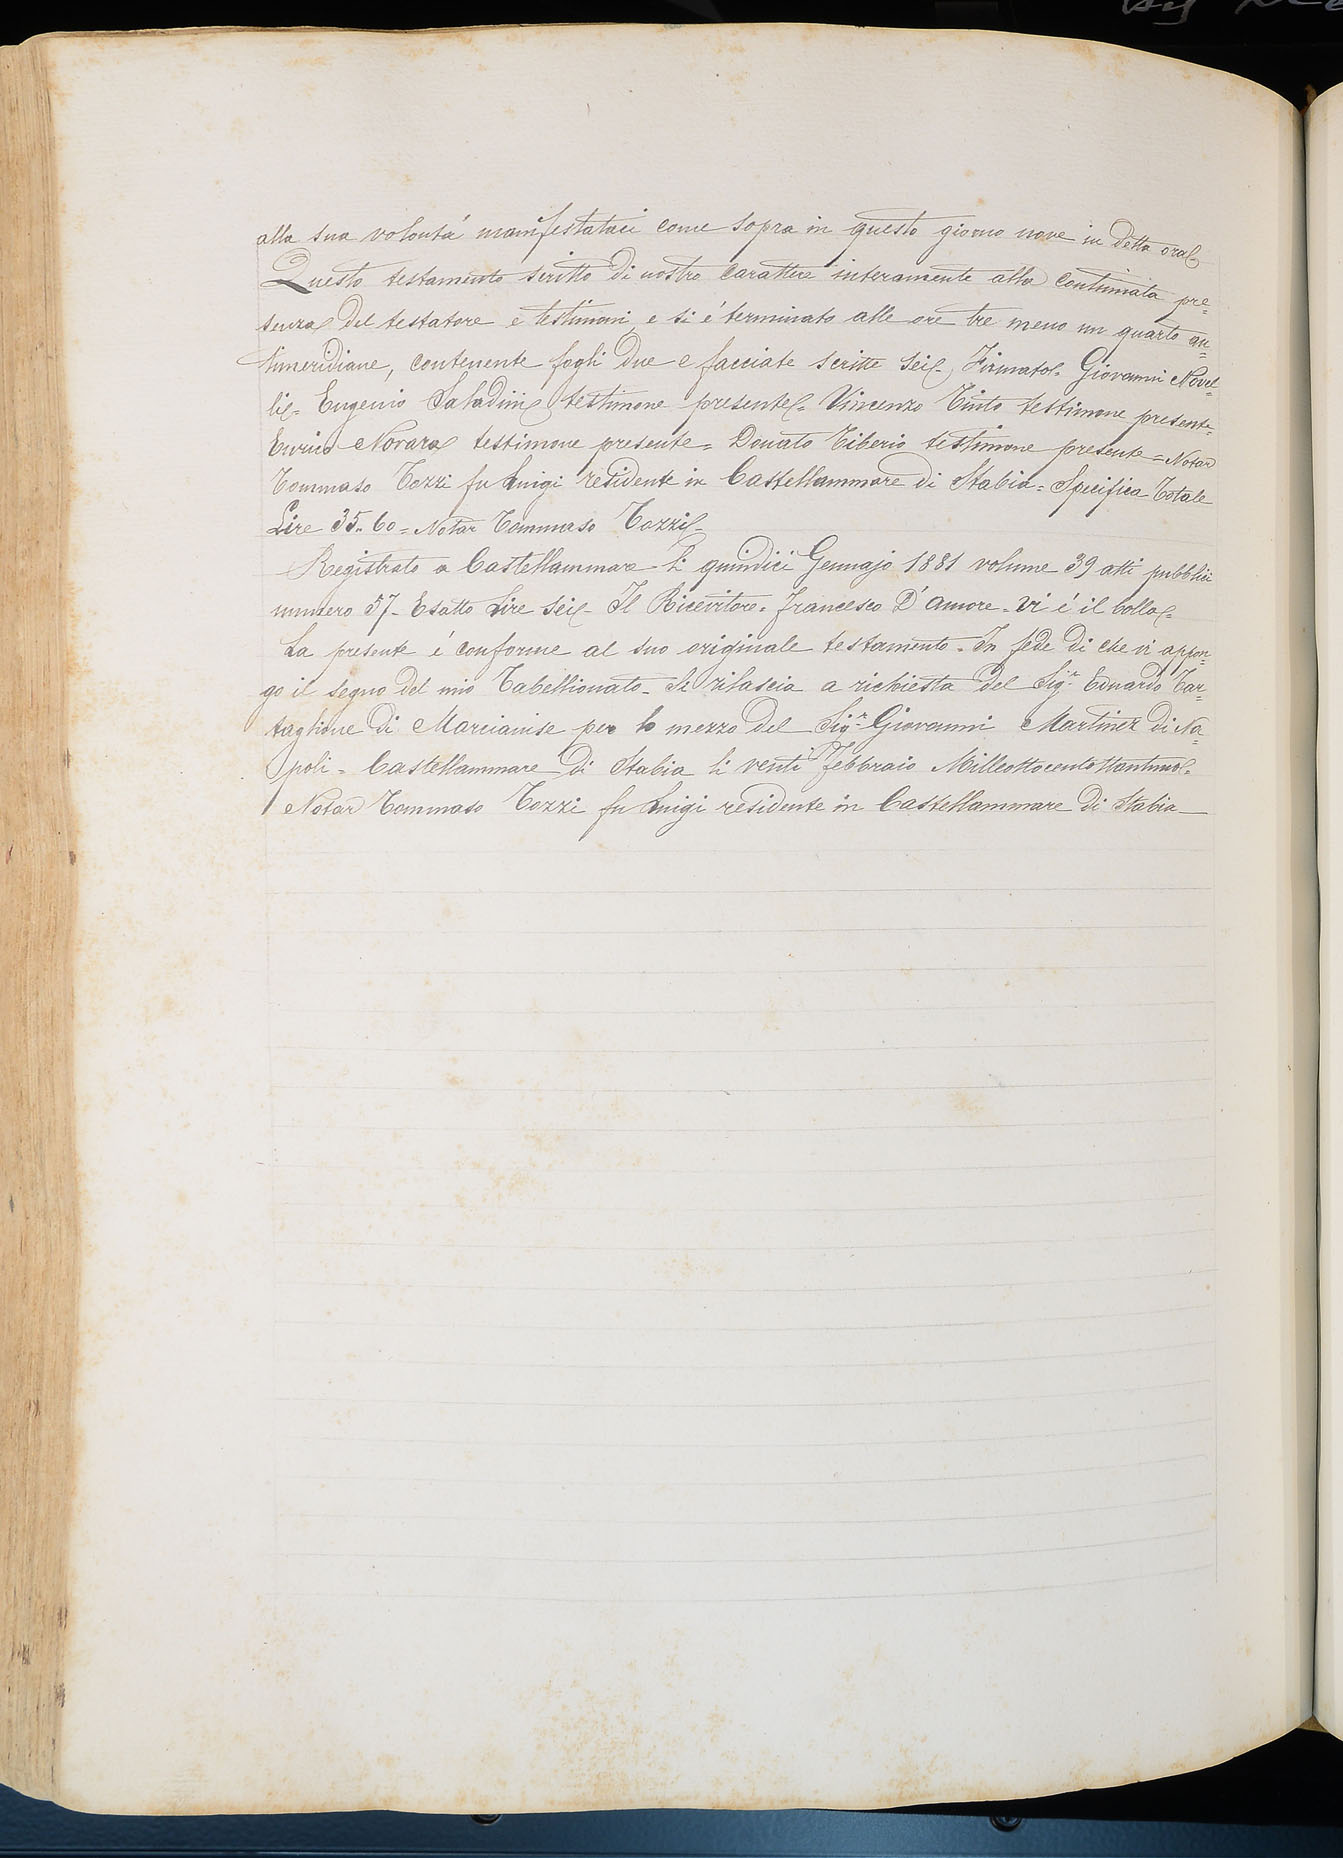 alla sua volontá manifestataci come sopra in questo giorno nove in detta ora=
Questo testamento scritto di nostro carattere interamente alla continuata pre=
senza del testatore e testimoni e si é terminato alle ore tre meno un quarto an=
timeridiane, contenente fogli due e facciate scritte sei=, Firmato= Giovanni Novel=
li= Eugenio Saladini testimone presente= Vincenzo Tinto testimone presente=
Enrico Novara testimone presente= Donato Tiberio testimone presente= Notar
Tommaso Tozzi fu Luigi residente in Castellammare di Stabia= Specifica Totale
Lire 35..60= Notar Tommaso Tozzi=
Registrato a Castellammare li quindici Gennajo 1881 volume 39 atti pubblici
numero 57- Esatto Lire sei- Il Ricevitore= Francesco D'Amore- Vi é il bollo=
La presente é conforme al suo originale testamento. In fede di che vi appon=
go il segno del mio Tabellionato- Si rilascia a richiesta del Sig.r Eduardo Tar=
taglione di Marcianise per lo mezzo del Sig.r Giovanni Martinez di Na=
poli= Castellammare di Stabia li venti Febbraio Milleottocentottantuno=
Notar Tommaso Tozzi fu Luigi residente in Castellammare di Stabia—